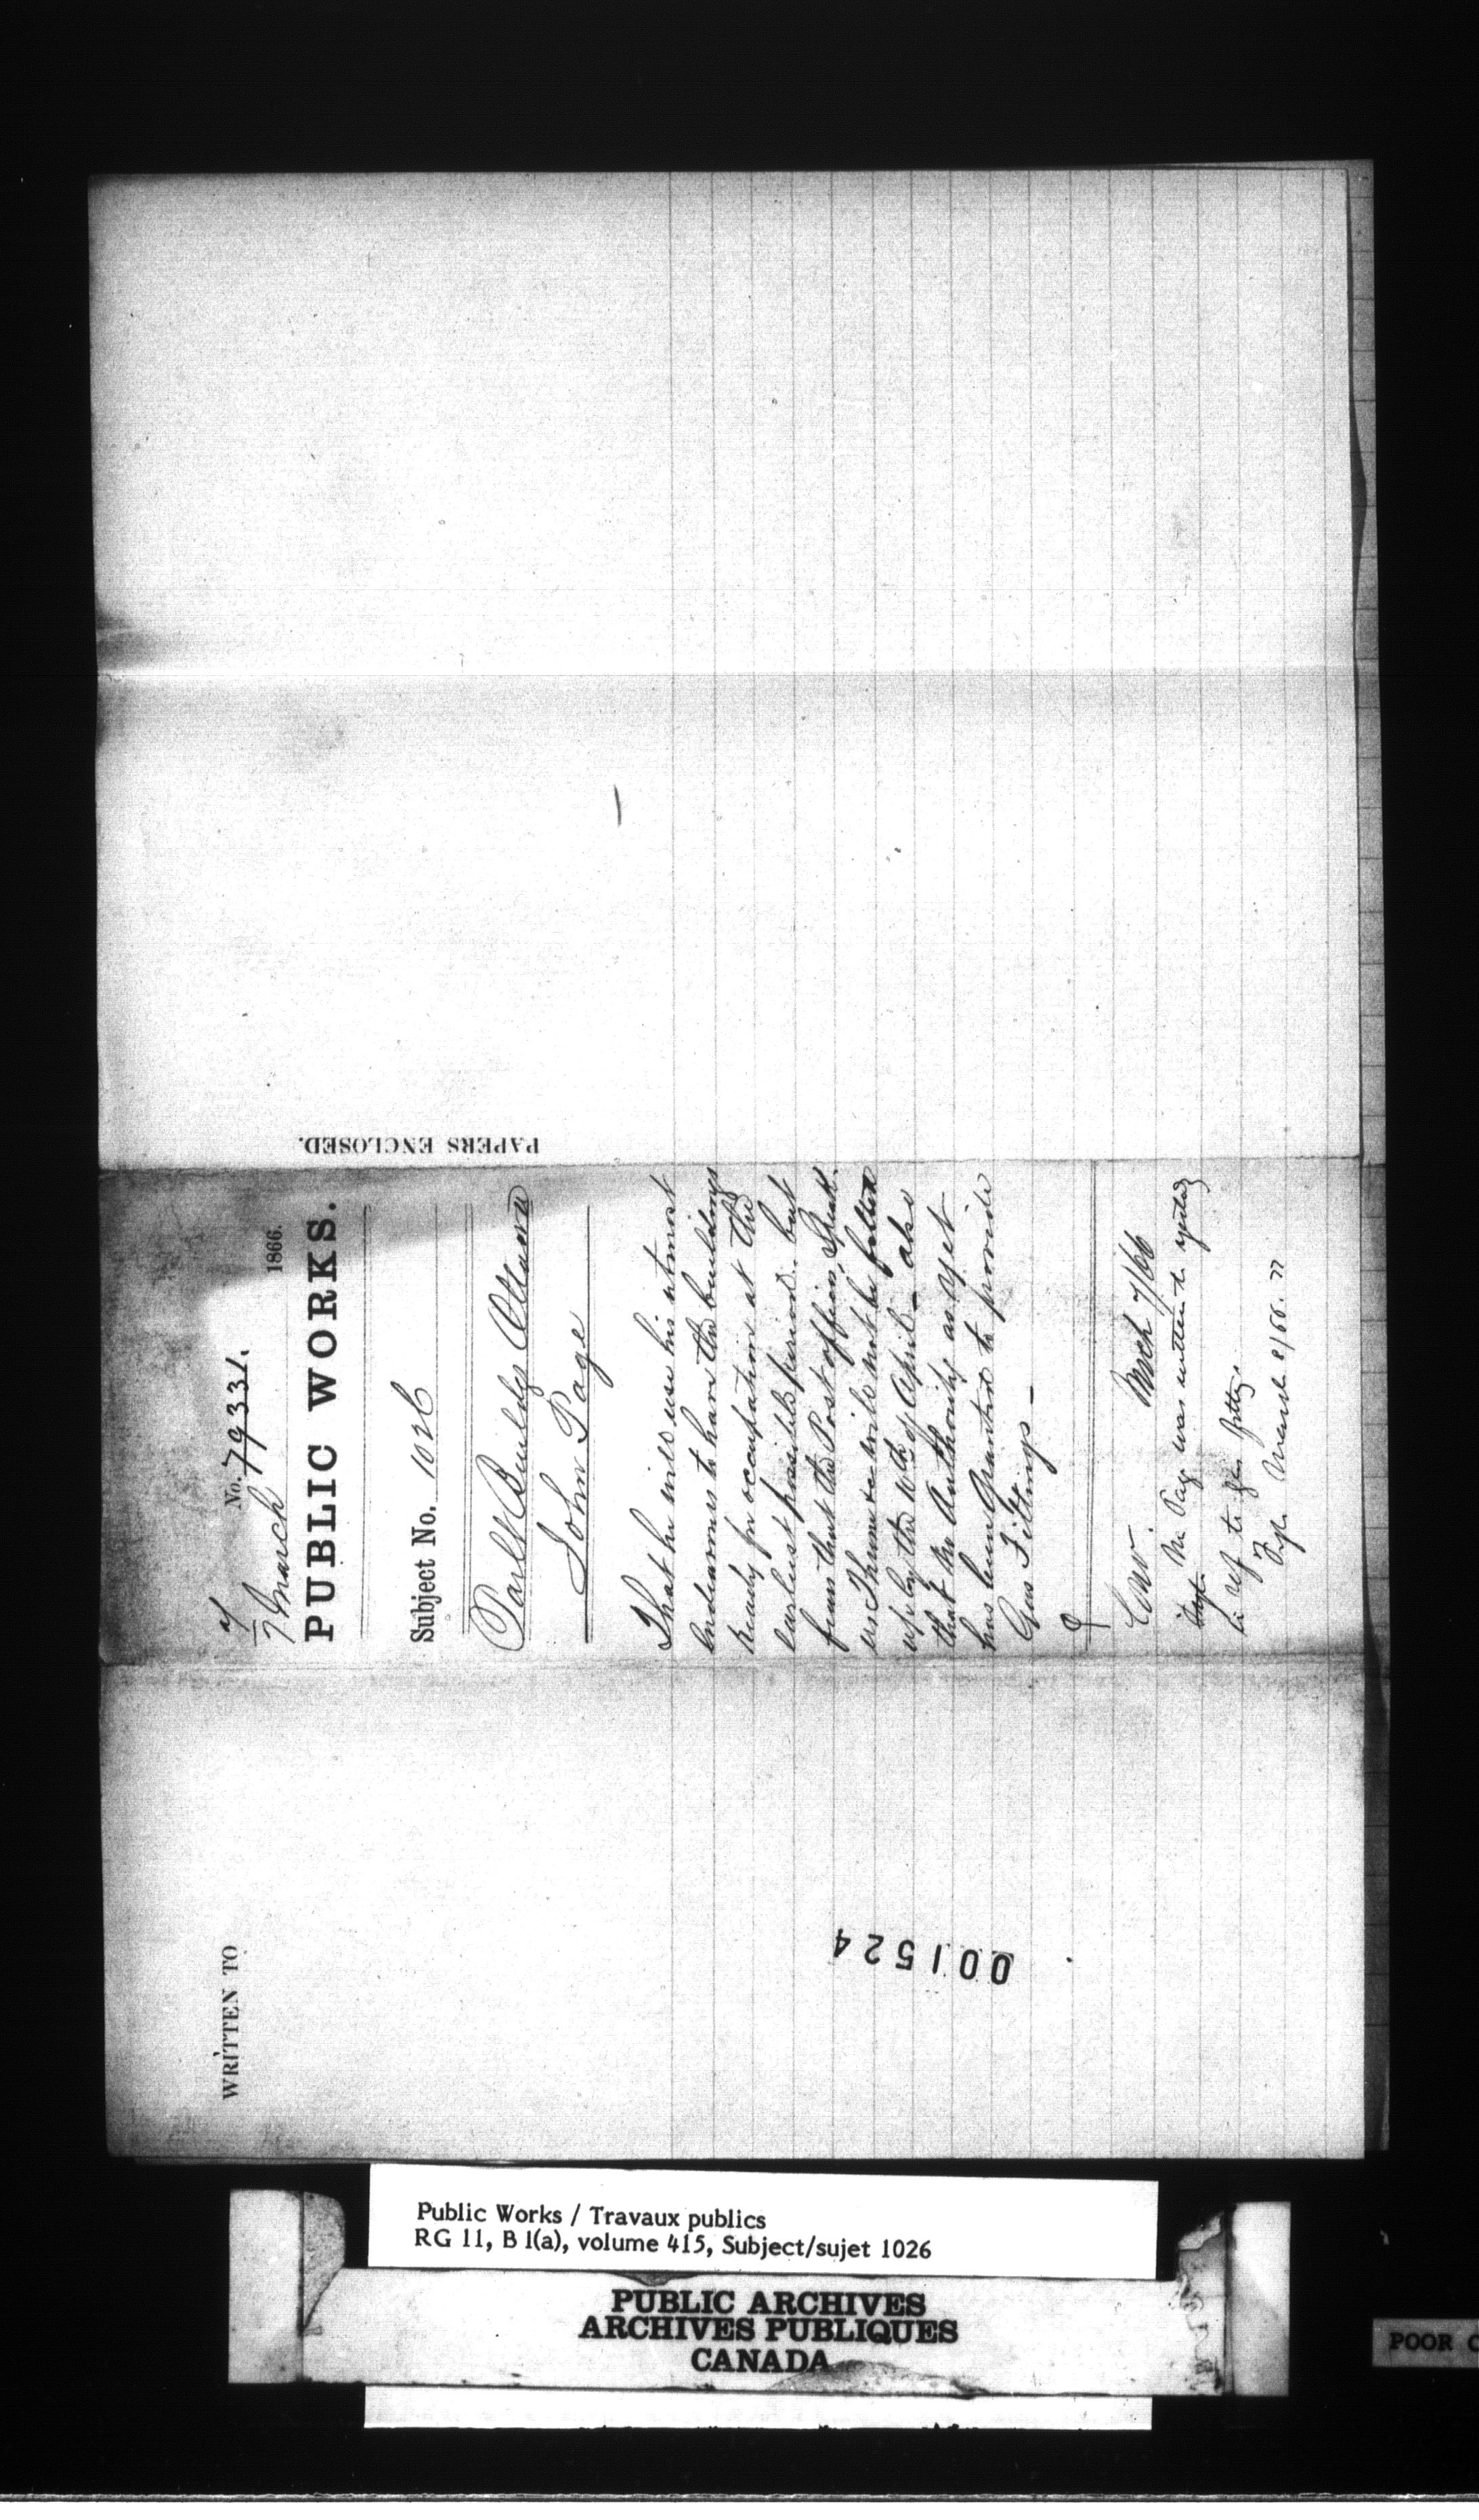 No. 79331.
7 March 1866.
PUBLIC WORKS.
Subject No. 1026
Parlt Buildgs Ottawa
John Page
That he will use his utmost
endeavours to have the buildings
ready for occupation at the
earliest possible period but
fears that the Post office,
will not be fitted
up by the 10th of April - also
that no Authority as yet
has been granted to provide
Gas Fittings -
March 7/66
Mr Page was written to
in ref to gas fittgs.
March 8/66.
PAPERS ENCLOSED.
WRITTEN TO
001524
Public Works / Travaux publics
RG 11, B 1(a), volume 415, Subject/sujet 1026
PUBLIC ARCHIVES
ARCHIVES PUBLIQUES
CANADA
POOR